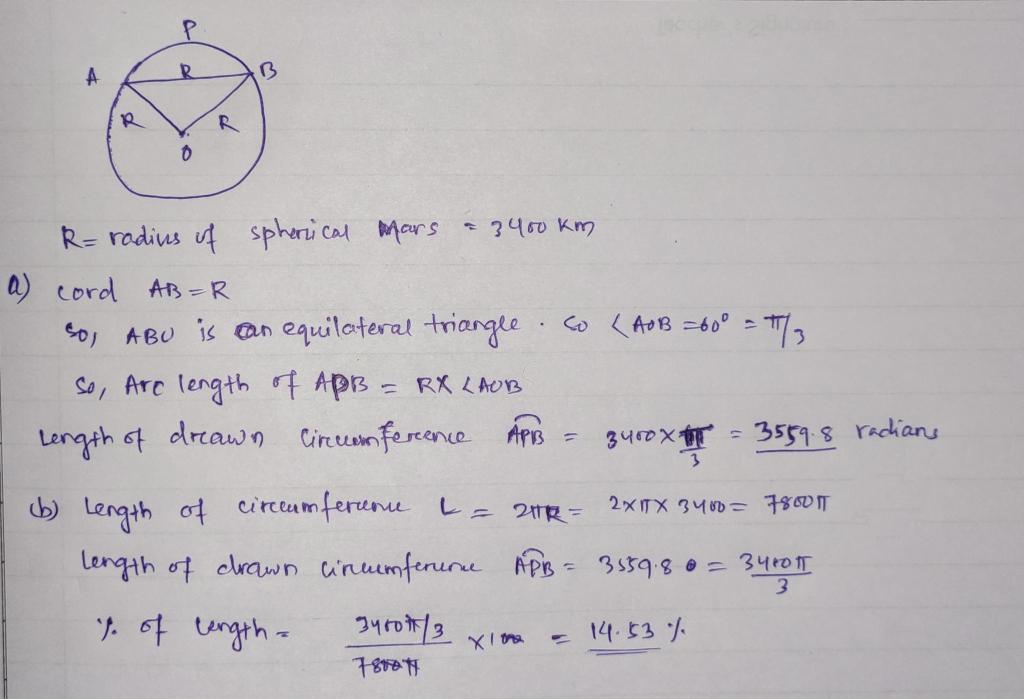 P
A R B
R R
O
R = radius of spherical Mars = 3400 km
a) cord AB = R
So, ABO is an equilateral triangle . So ∠AOB = 60° = π/3
So, Arc length of APB = R X ∠AOB
Length of drawn Circumference APB = 3400 × π/3 = 3559.8 radians
(b) Length of circumference L = 2πR = 2×π× 3400 = 7800π
Length of drawn circumference APB = 3559.8 = 3400π/3
% of length = 3400π/3 / 7800π ×100 = 14.53 %